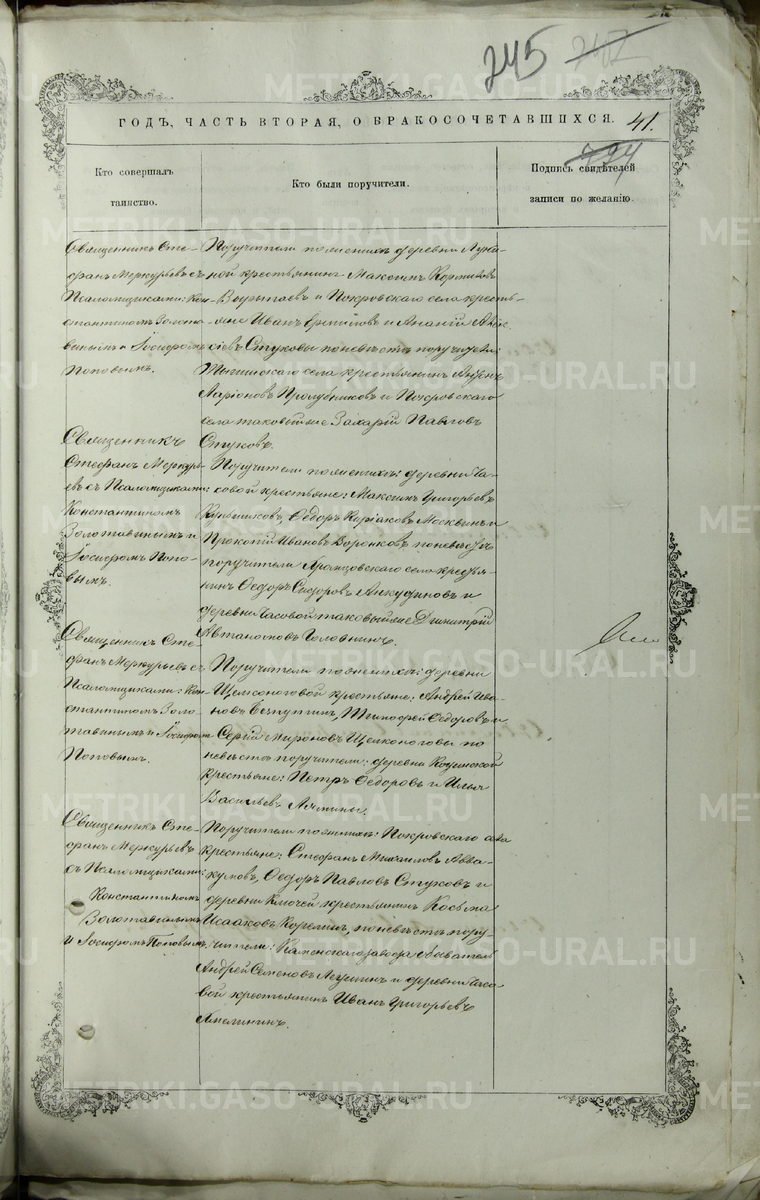 245
ГОДЪ, ЧАСТЬ ВТОРАЯ, О БРАКОСОЧЕТАВШИХСЯ.
41.
Кто совершалъ
таинство.
Кто были поручители.
Подпись свидѣтелей
записи по желанію.
Священникъ Сте-
фанъ Меркурьевъ съ
Псаломщиками: Кон-
стантиномъ Золота-
винымъ и Іосифомъ
Поповымъ.
Поручители по женихѣ деревни
ной крестьянинъ Максимъ
и Покровскаго села кресть-
яне Иванъ и Ананій
Стуковы по невѣстѣ поручители:
села крестьянинъ
Ларіоновъ и Покровскаго
села таковый же Захарій Павловъ
Стуковъ.
Священникъ
Стефанъ Меркурь-
евъ съ Псаломщиками:
Константиномъ
Золотавинымъ и
Іосифомъ Попо-
вымъ.
Поручители по женихѣ: деревни Ча-
совой крестьяне: Максимъ Григорьевъ
Ѳедоръ Киріаковъ Москвинъ и
Прокопій Ивановъ Воронковъ по невѣстѣ
поручители села крестья-
нинъ Ѳедоръ Сидоровъ Анкудиновъ и
деревни Часовой таковый же Димитрій
Автономовъ Головнинъ.
Священникъ Сте-
фанъ Меркурьевъ съ
Псаломщиками: Кон-
стантиномъ Золо-
тавинымъ и Іосифомъ
Поповымъ.
Поручители по женихѣ: деревни
Щелконоговой крестьяне: Андрей Ива-
новъ Тимофей Ѳедоровъ и
Сергій Мироновъ Щелконоговы по
невѣстѣ поручители: деревни
крестьяне: Петръ Ѳедоровъ и Илья
Васильевъ Лямины.
Священникъ Сте-
фанъ Меркурьевъ
съ Псаломщиками:
Константиномъ
Золотавинымъ
и Іосифомъ Поповымъ.
Поручители по женихѣ: Покровскаго села
крестьяне: Стефанъ Михаиловъ Авва-
кумовъ, Ѳедоръ Павловъ Стуковъ и
деревни Ключей крестьянинъ Косьма
Исааковъ Корелинъ, по невѣстѣ пору-
чители: Каменскаго завода обыватель
Андрей Семеновъ и деревни Часо-
вой крестьянинъ Иванъ Григорьевъ
METRIKI.GASO-URAL.RU